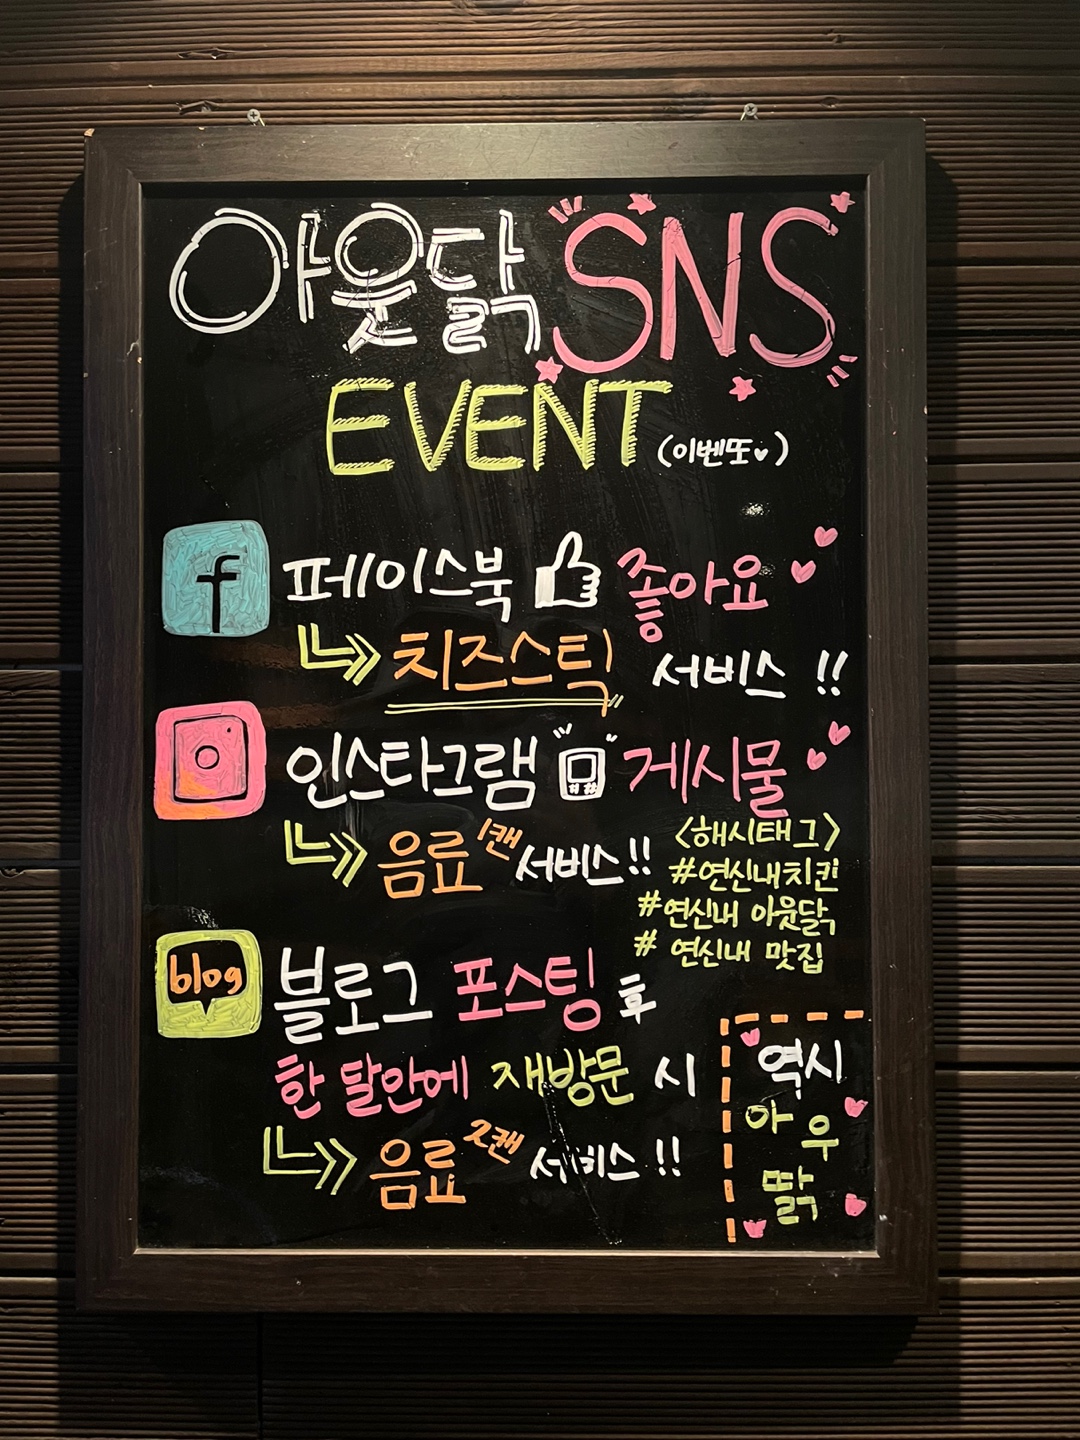 아웃닭 SNS
EVENT (이벤또♥)
f 페이스북 좋아요
치즈스틱 서비스 !!
인스타그램 게시물
음료 1캔 서비스!!
<해시태그>
#연신내치킨
#연신내 아웃닭
# 연신내 맛집
blog 블로그 포스팅 후
한 달안에 재방문 시
음료 2캔 서비스 !!
역시
아우
딹